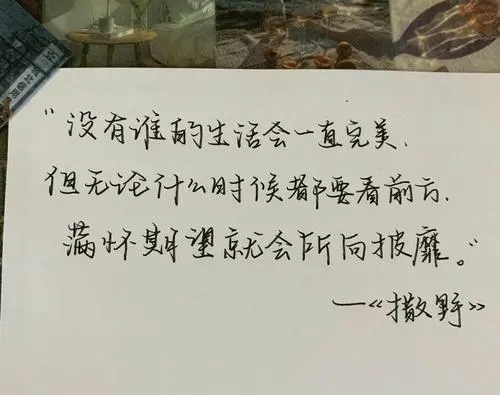 “没有谁的生活会一直完美,
但无论什么时候都要看前方,
满怀期望就会所向披靡。”
—《撒野》